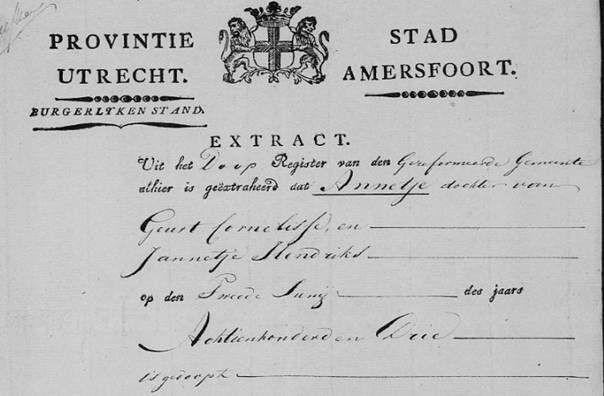 PROVINTIE
UTRECHT.
BURGERLYKEN STAND.
STAD
AMERSFOORT.
EXTRACT.
Uit het Doop Register van den Gereformeerde Gemeente
alhier is geëxtraheerd dat Annetje dochter van
Geurt Cornelisse, en
Jannetje Hendriks
op den Tweede Junij des jaars
Achtienhonderd en Drie
is gedoopt